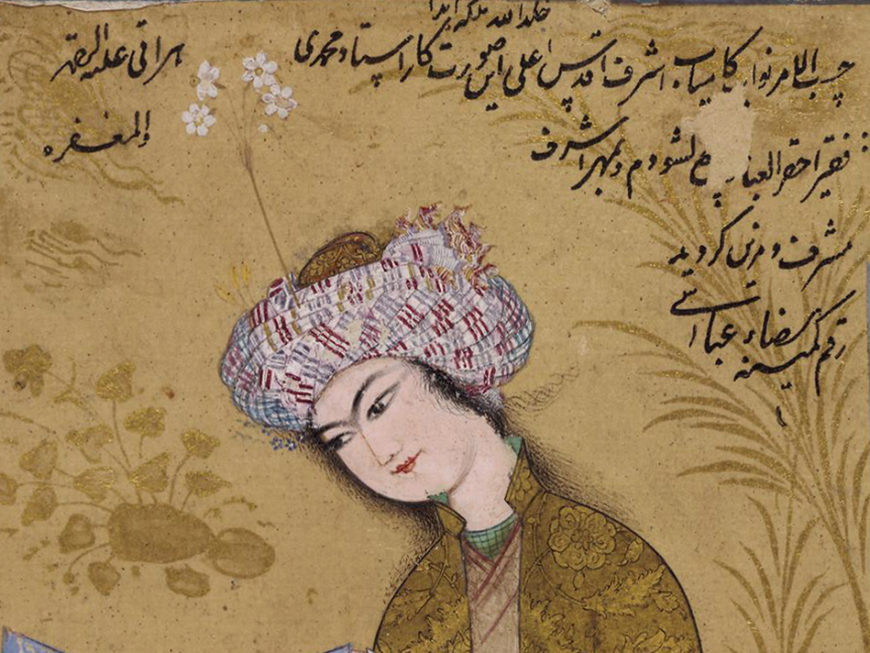 خلد الله ملکه ابدا
حسب الامر نواب کامیاب اشرف اقدس اعلی این صورت کار استاد محمدی
هراتی علیه الرحمه
والمغفره
فقیر احقر العبا و اشرف
مشرف و مزین گردید
رقم کمینه رضاء عباسی